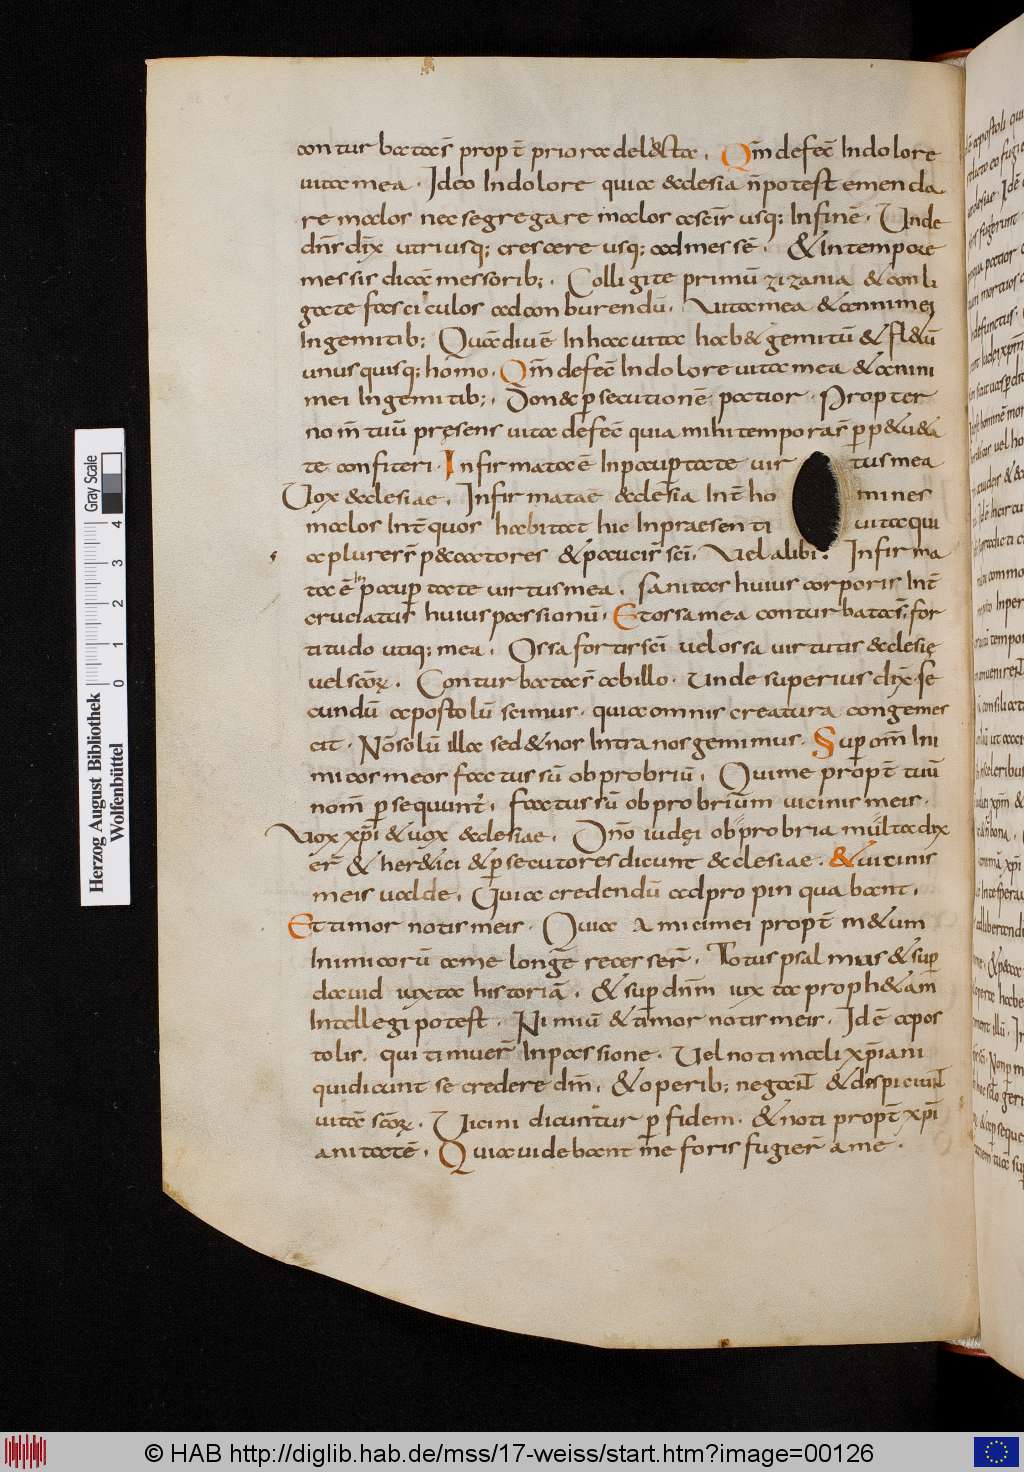 conturbatas prop̄t priora delicta. Qm̄ defec̄ In dolore
uita mea. Ideo In dolore quia ecclesia n̄ potest emenda
re malos nec segregare malos a seīr usq; In finē. Unde
dn̄s dix̄ utriusq; crescere usq; ad messē. & In tempore
messis dicā messorib;. Colligite primū zizania & conli
gate fasciculos ad conburendū. Uita mea & anni mei
In gemitib; Quādiu ē In hac uita hab& gemitū & fl&ū
unus quisq; homo. Qm̄ defec̄ In dolore uita mea & anni
mei In gemitib;. Donec p̱secutionē patior. Propter
nom̄ tuū pręsens uita defec̄ quia mihi temporar̄ p̱p&ui&a
te confiteri. Infirmata ē In paup̱tate uir tus mea
Uox ecclesiae. Infirmata ē ecclesia Int̄ ho mines
malos Int̄ quos habitat hic In praesenti uita qui
a plures s̄ peccatores & pauci s̄ sc̄i. Uel alibi. Infirma
ta ē In paup̱tate uirtus mea. sanitas huius corporis Int̄
cruciatus huius passionū. Et ossa mea conturbata s̄ for
titudo utiq; mea. Ossa fortis sc̄i uel ossa uirtutis ecclesię
uel scōꝝ. Conturbata s̄ ab illo. Unde superius dix̄ se
cundū apostolū scimus. quia omnis creatura congemes
cit. Nōsolū illa sed & nos Intra nos gemimus. Sup̱ om̄ Ini
micos meos factus sū obprobriū. Qui me prop̄t tuū
nom̄ p̱sequunt̄. factus sū obprobrium uicinis meis.
Uox xp̄i & uox ecclesiae. Om̄o iudęi obprobria multa dix
er̄ & her&ici & p̱secutores dicunt ecclesiae. & uicinis
meis ualde. Quia credendū ad propinquabant.
Et timor notis meis. Quia Amici mei prop̄t m&um
Inimicorū a me longe recesser̄. Totus psalmus & sup̱
dauid iuxta historiā. & sup̱ dn̄m iuxta proph&iam̄
Intellegi potest. Nimiū & timor notis meis. Id ē apos
tolis. qui timuer̄ In passione. Uel noti mali xp̄iani
qui dicunt se credere dm̄. & operib; negant & dispiciunt
uitā scōꝝ. Uicini dicuntur p̱ fidem. & noti prop̄t xp̄i
anitatē. Quia uidebant me foris fugier̄ a me.
Herzog August Bibliothek
Wolfenbüttel
Gray Scale
0 1 2 3 4
© HAB http://diglib.hab.de/mss/17-weiss/start.htm?image=00126